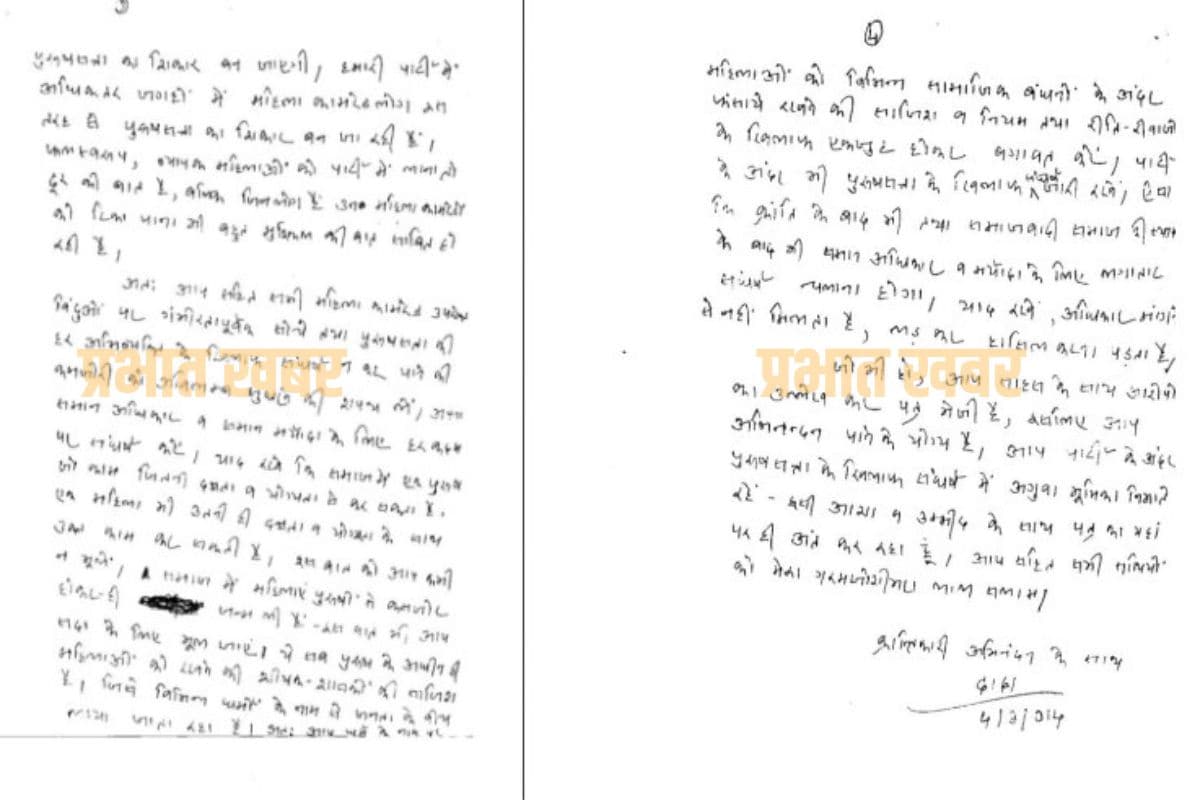 3
पुरुषसत्ता का शिकार बन जाएगी, हमारी पार्टी में
अधिकतर जगहों में महिला कामरेड लोग इस
तरह से पुरुषसत्ता का शिकार बन जा रही हैं,
फलस्वरूप, व्यापक महिलाओं को पार्टी में लाना तो
दूर की बात है, बल्कि जितने लोग हैं उन महिला कामरेडों
को टिका पाना भी बहुत मुश्किल की बात साबित हो
रही है,
अतः आप सहित सभी महिला कामरेड उपरोक्त
बिंदुओं पर गंभीरतापूर्वक सोचें तथा पुरुषसत्ता की
हर अभिव्यक्ति के खिलाफ संघर्ष न कर पाने की
कमजोरी को अविलम्ब सुधारने की शपथ लें,
समान अधिकार व समान मर्यादा के लिए हर कदम
पर संघर्ष करें, याद रखें कि समाज में एक पुरुष
जो काम जितनी दक्षता व योग्यता से कर सकता है,
एक महिला भी उतनी ही दक्षता व योग्यता के साथ
उक्त काम कर सकती है, इस बात को आप कभी
न भूलें, समाज में महिलाएं पुरुषों से कमजोर
होकर ही जन्म ली हैं - इस बात को आप
सदा के लिए भूल जाएं, ये सब पुरुष के अधीन ही
महिलाओं को रखने की शोषक-शासकों की साजिश
है, जिसे विभिन्न धर्मों के नाम से जनता के बीच
लाया जाता रहा है, अतः आप धर्म के नाम पर
4
महिलाओं को विभिन्न सामाजिक बंधनों के अंदर
फंसाये रखने की साजिश व नियम तथा रीति-रीवाजों
के खिलाफ एकजुट होकर बगावत करें, पार्टी
के अंदर भी पुरुषसत्ता के खिलाफ संघर्ष जारी रखें,
कि क्रांति के बाद भी तथा समाजवादी समाज की स्थापना
के बाद भी समान अधिकार व मर्यादा के लिए लगातार
संघर्ष चलाना होगा, याद रखें, अधिकार मांगने
से नहीं मिलता है, लड़ कर हासिल करना पड़ता है,
जो भी हो, आप साहस के साथ आरोपों
का उल्लेख कर पत्र भेजी हैं, इसलिए आप
अभिनन्दन पाने के योग्य हैं, आप पार्टी के अंदर
पुरुषसत्ता के खिलाफ संघर्ष में अगुवा भूमिका निभाते
रहें - इसी आशा व उम्मीद के साथ पत्र का यहां
पर ही अंत कर रहा हूं, आप सहित सभी साथियों
को मेरा गरमजोशीभरा लाल सलाम,
क्रांतिकारी अभिनंदन के साथ
प्रभात खबर
प्रभात खबर